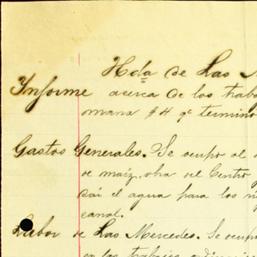 Hda de Las
Informe acerca de los trab
omana #4 qe termino
Gastos Generales. Se ocupo el
de maiz, obra del Centro
el agua para los
canal.
Labor de Las Mercedes. Se ocup
en los trabajos